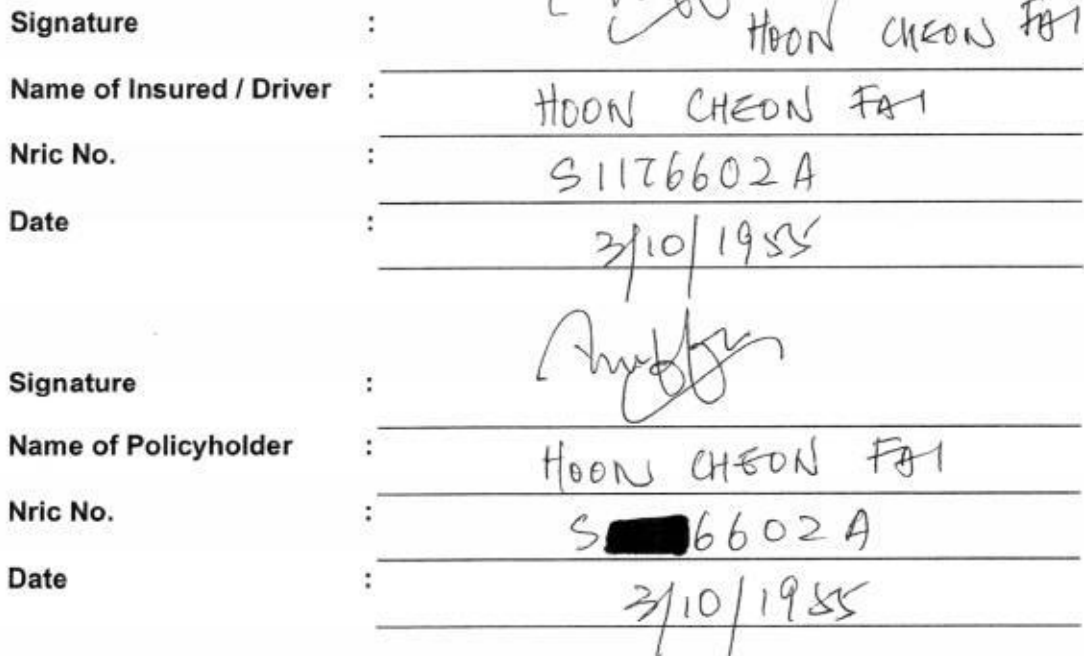 Signature : HOON CHEON FAI
Name of Insured / Driver : HOON CHEON FAI
Nric No. : S1176602A
Date : 3/10/1955
Signature :
Name of Policyholder : HOON CHEON FAI
Nric No. : S 6602A
Date : 3/10/1955